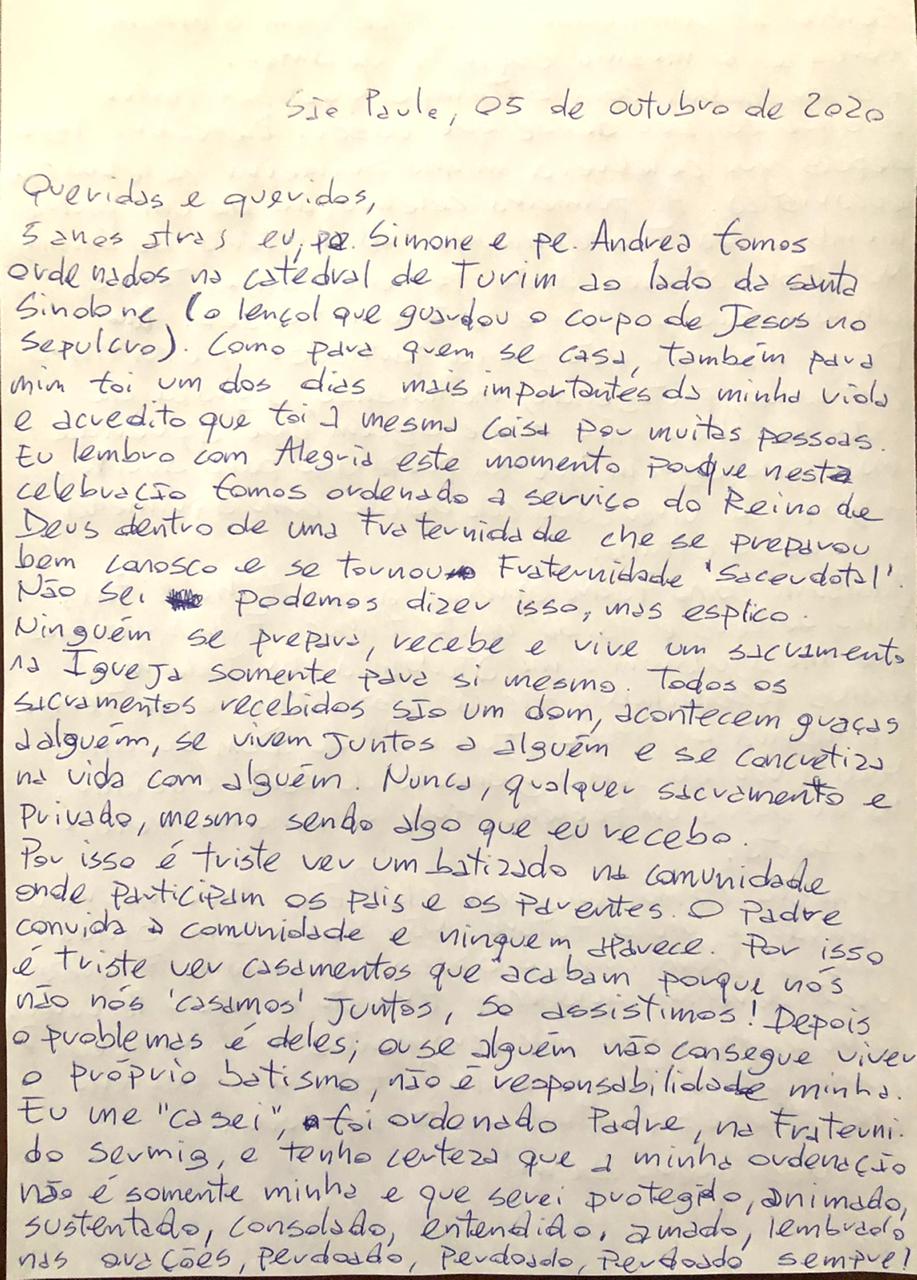 São Paulo, 05 de outubro de 2020
Queridas e queridos,
5 anos atras eu, pe. Simone e pe. Andrea fomos
ordenados na catedral de Turim ao lado da santa
Sindone (o lençol que guardou o corpo de Jesus no
sepulcro). Como para quem se casa, também para
mim foi um dos dias mais importantes da minha vida
e acredito que foi a mesma coisa por muitas pessoas.
Eu lembro com Alegria este momento porque nesta
celebração fomos ordenado a serviço do Reino de
Deus dentro de uma Fraternidade che se preparou
bem conosco e se tornou Fraternidade 'Sacerdotal'.
Não sei podemos dizer isso, mas esplico.
Ninguém se prepara, recebe e vive um sacramento
na Igreja somente para si mesmo. Todos os
sacramentos recebidos são um dom, acontecem graças
a alguém, se vivem juntos a alguém e se concretiza
na vida com alguém. Nunca, qualquer sacramento e
privado, mesmo sendo algo que eu recebo.
Por isso é triste ver um batizado na comunidade
onde participam os pais e os parentes. O Padre
convida a comunidade e ninguem aparece. Por isso
é triste ver casamentos que acabam porque nós
não nós 'casamos' juntos, so assistimos! Depois
o problemas é deles; ou se alguém não consegue viver
o próprio batismo, não é responsabilidade minha.
Eu me "casei", foi ordenado Padre, na Fraterni.
do Sermig, e tenho certeza que a minha ordenação
não é somente minha e que serei protegido, animado,
sustentado, consolado, entendido, amado, lembrado
nas orações, perdoado, perdoado, perdoado sempre!